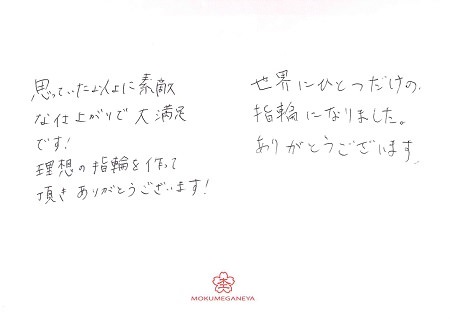 思っていた以上に素敵
な仕上がりで大満足
です!
理想の指輪を作って
頂きありがとうございます!
世界にひとつだけの
指輪になりました。
ありがとうございます
MOKUMEGANEYA